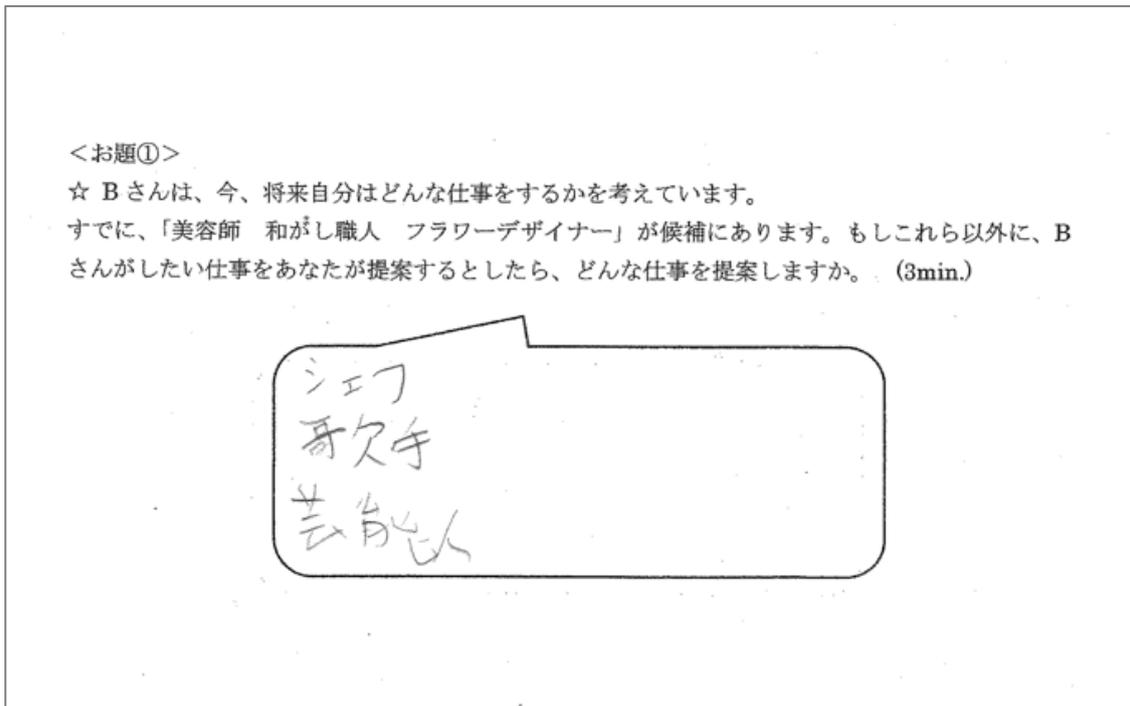 ＜お題①＞
☆ Bさんは、今、将来自分はどんな仕事をするかを考えています。
すでに、「美容師　和がし職人　フラワーデザイナー」が候補にあります。もしこれら以外に、B
さんがしたい仕事をあなたが提案するとしたら、どんな仕事を提案しますか。 (3min.)
シェフ
歌手
芸能人